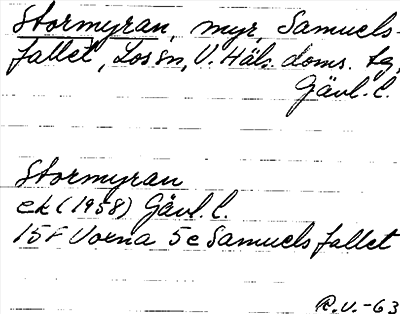 Stormyran, myr, Samuels-
fallet, Los sn, V. Häls. doms. tg,
Gävl. l.
Stormyran
ek (1958) Gävl. l.
15F Voxna 5c Samuelsfallet
R.V.-63